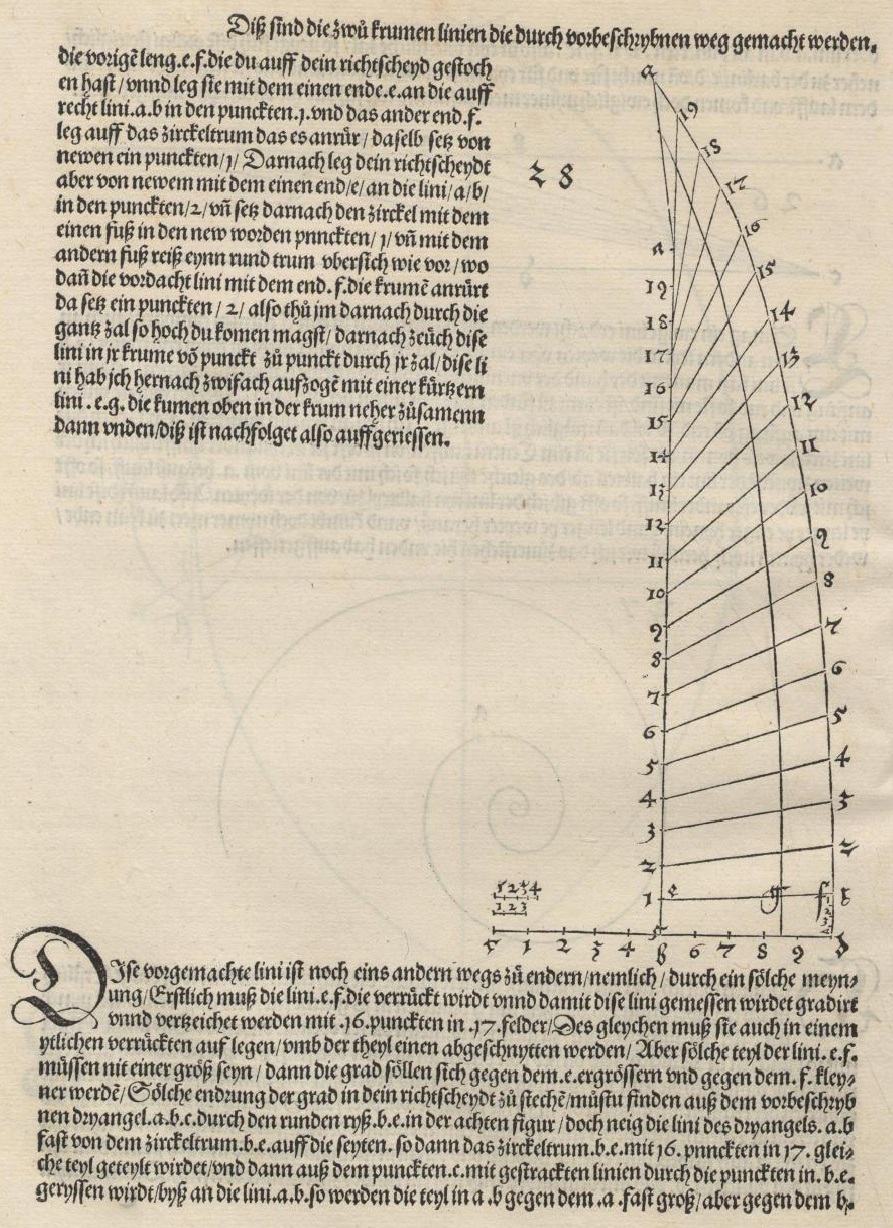 Diß sind die zwů krumen linien die durch vorbeschrybnen weg gemacht werden.
die vorigẽ leng.e.f.die du auff dein richtscheyd gestoch
en hast/vnnd leg sie mit dem einen ende.e.an die auff
recht lini.a.b in den punckten.1.vnd das ander end.f.
leg auff das zirckeltrum das es anrür/daselb setz von
newen ein punckten/1/Darnach leg dein richtscheydt
aber von newem mit dem einen end/e/an die lini/a/b/
in den punckten/2/vñ setz darnach den zirckel mit dem
einen fuß in den new worden pnnckten/1/vñ mit dem
andern fuß reiß eynn rund trum vbersich wie vor/wo
dañ die vordacht lini mit dem end.f.die krumẽ anrürt
da setz ein punckten/2/also thů jm darnach durch die
gantz zal so hoch du komen magst/darnach zeüch dise
lini in jr krume võ punckt zů punckt durch jr zal/dise li
ni hab jch hernach zwifach aufzogẽ mit einer kürtzern
lini.e.g.die kumen oben in der krum neher zůsamenn
dann vnden/diß ist nachfolget also auffgeriessen.
28
a
19
18
17
16
15
14
13
12
11
10
9
8
7
6
5
4
3
2
1
a
19
18
17
16
15
14
13
12
11
10
9
8
7
6
5
4
3
2
1 e g f
1 2 3 4
1 2 3
1 2 3 4 6 7 8 9
DIse vorgemachte lini ist noch eins andern wegs zů endern/nemlich/durch ein sölche meyn-
ung/Erstlich muß die lini.e.f.die verruckt wirdt vnnd damit dise lini gemessen wirdet gradirt
vnnd vertzeichet werden mit.16.punckten in.17.felder/Des gleychen muß sie auch in einem
ytlichen verrückten auf legen/vmb der theyl einen abgeschnytten werden/Aber sölche teyl der lini.e.f.
müssen nit einer größ seyn/dann die grad söllen sich gegen dem.e.ergrössern vnd gegen dem.f.kley-
ner werdẽ/Sölche endrung der grad in dein richtscheydt zů stechẽ/můstu finden auß dem vorbeschryb
nen dryangel.a.b.c.durch den runden ryß.b.e.in der achten figur/doch neig die lini des dryangels.a.b
fast von dem zirckeltrum.b.e.auff die seyten.so dann das zirckeltrum.b.e.mit 16.pnnckten in 17.glei-
che teyl geteylt wirdet/vnd dann auß dem punckten.c.mit gestrackten linien durch die punckten in.b.e.
geryssen wirdt/byß an die lini.a.b.so werden die teyl in a.b gegen dem.a.fast groß/aber gegen dem b.